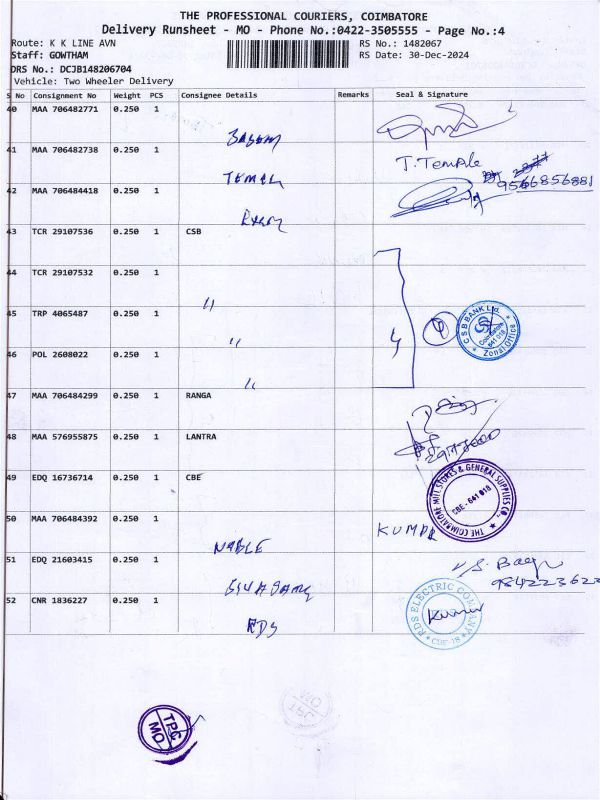 THE PROFESSIONAL COURIERS, COIMBATORE
Delivery Runsheet - MO - Phone No.:0422-3505555 - Page No.:4
Route: K K LINE AVN
RS No.: 1482067
Staff: GOWTHAM
RS Date: 30-Dec-2024
DRS No.: DCJB148206704
Vehicle: Two Wheeler Delivery
S No Consignment No Weight PCS Consignee Details Remarks Seal & Signature
40 MAA 706482771 0.250 1
41 MAA 706482738 0.250 1
T. Temple
9566856881
42 MAA 706484418 0.250 1
43 TCR 29107536 0.250 1 CSB
44 TCR 29107532 0.250 1
"
45 TRP 4065487 0.250 1
"
4
CSB BANK Ltd.
Coimbatore
641 018
Zonal Office
46 POL 2608022 0.250 1
"
47 MAA 706484299 0.250 1 RANGA
48 MAA 576955875 0.250 1 LANTRA
49 EDQ 16736714 0.250 1 CBE
THE COIMBATORE MILL STORES & GENERAL SUPPLIES CO.,
CBE - 641 018
50 MAA 706484392 0.250 1
NOBLE
KUMAR
51 EDQ 21603415 0.250 1
52 CNR 1836227 0.250 1
RDS
RDS ELECTRIC COMPANY
CBE-18
Kumar
TPC
MO